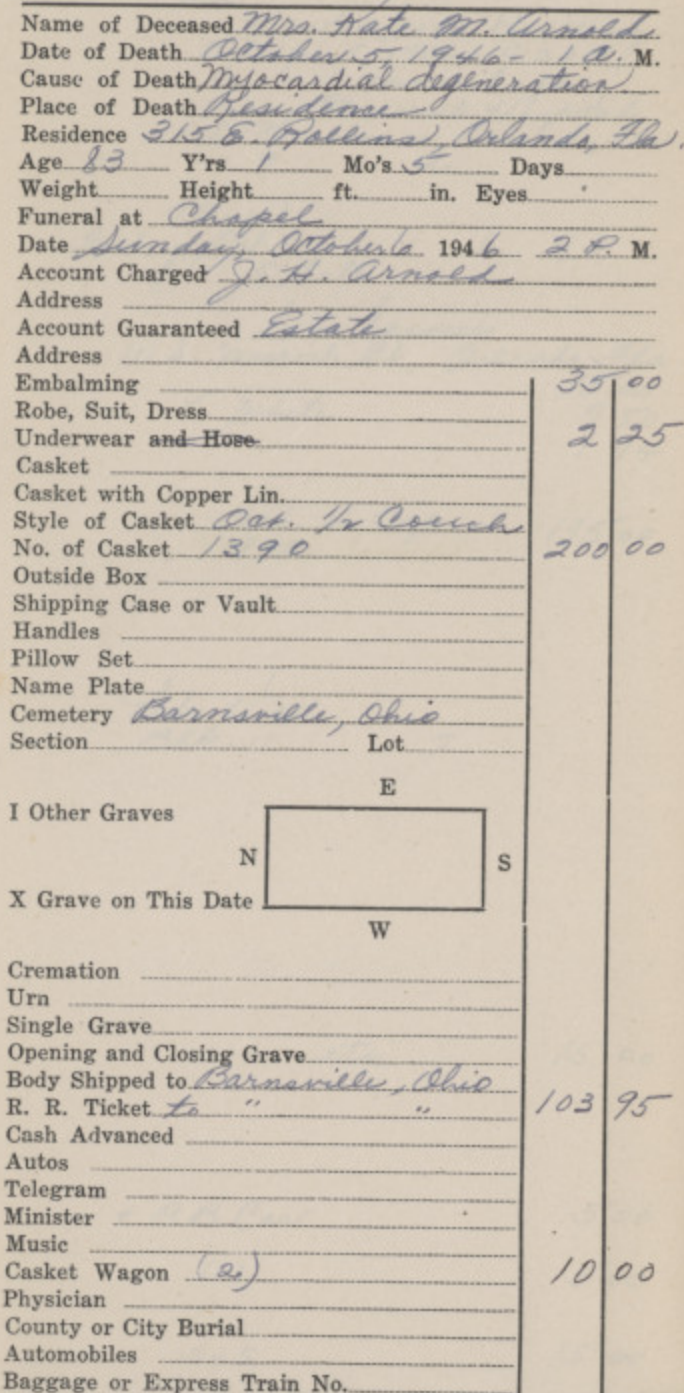 Name of Deceased Mrs. Kate M. Arnold
Date of Death October 5, 1946 - 1 A. M.
Cause of Death Myocardial degeneration
Place of Death Residence
Residence 315 E. Rollins, Orlando, Fla.
Age 83 Y'rs 1 Mo's 5 Days
Weight Height ft. in. Eyes
Funeral at Chapel
Date Sunday, October 6 1946 2 P. M.
Account Charged J. H. Arnold
Address
Account Guaranteed Estate
Address
Embalming 35 00
Robe, Suit, Dress
Underwear and Hose 2 25
Casket
Casket with Copper Lin.
Style of Casket Oct. 1/2 Couch
No. of Casket 1390 200 00
Outside Box
Shipping Case or Vault
Handles
Pillow Set
Name Plate
Cemetery Barnsville, Ohio
Section Lot
E
I Other Graves
N S
X Grave on This Date
W
Cremation
Urn
Single Grave
Opening and Closing Grave
Body Shipped to Barnsville, Ohio
R. R. Ticket to " " 103 95
Cash Advanced
Autos
Telegram
Minister
Music
Casket Wagon (2) 10 00
Physician
County or City Burial
Automobiles
Baggage or Express Train No.